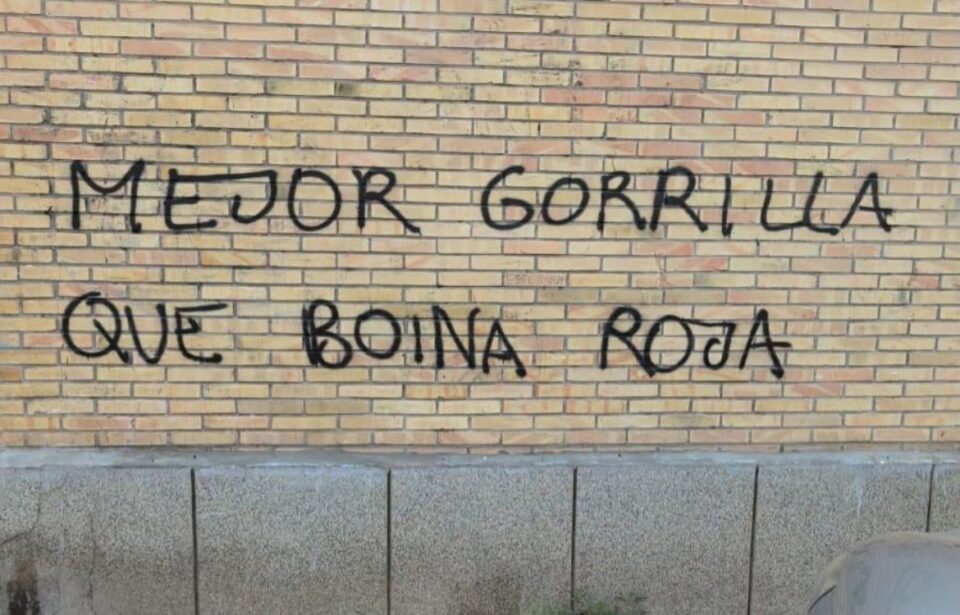 MEJOR GORRILLA
QUE BOINA ROJA